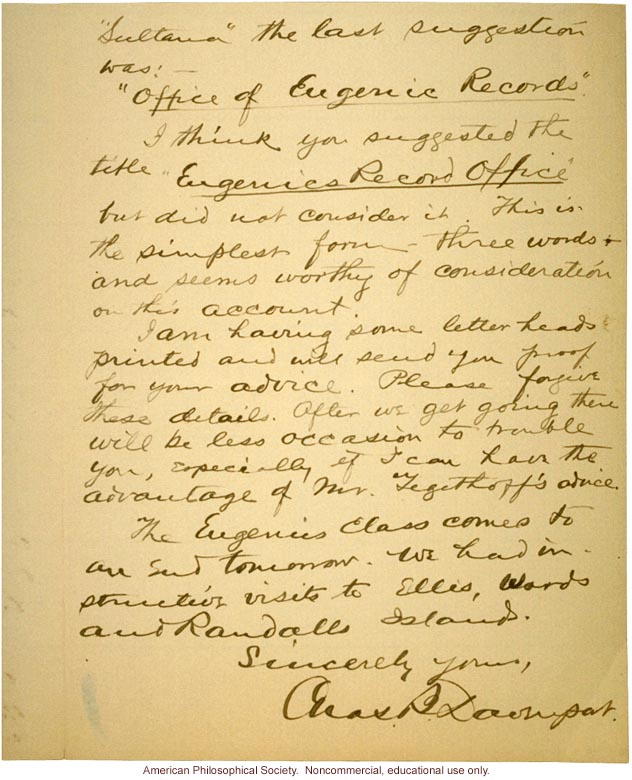 "Sultana" the last suggestion
was: —
"Office of Eugenic Records".
I think you suggested the
title "Eugenics Record Office"
but did not consider it. This is
the simplest form - three words -
and seems worthy of consideration
on this account.
I am having some letter heads
printed and will send you proof
for your advice. Please forgive
these details. After we get going there
will be less occasion to trouble
you, especially if I can have the
advantage of Mr. Tegethoff's advice.
The Eugenics Class comes to
an End tomorrow. We had in-
structive visits to Ellis, Wards
and Randalls Islands.
Sincerely yours,
Chas. B. Davenport.
American Philosophical Society. Noncommercial, educational use only.